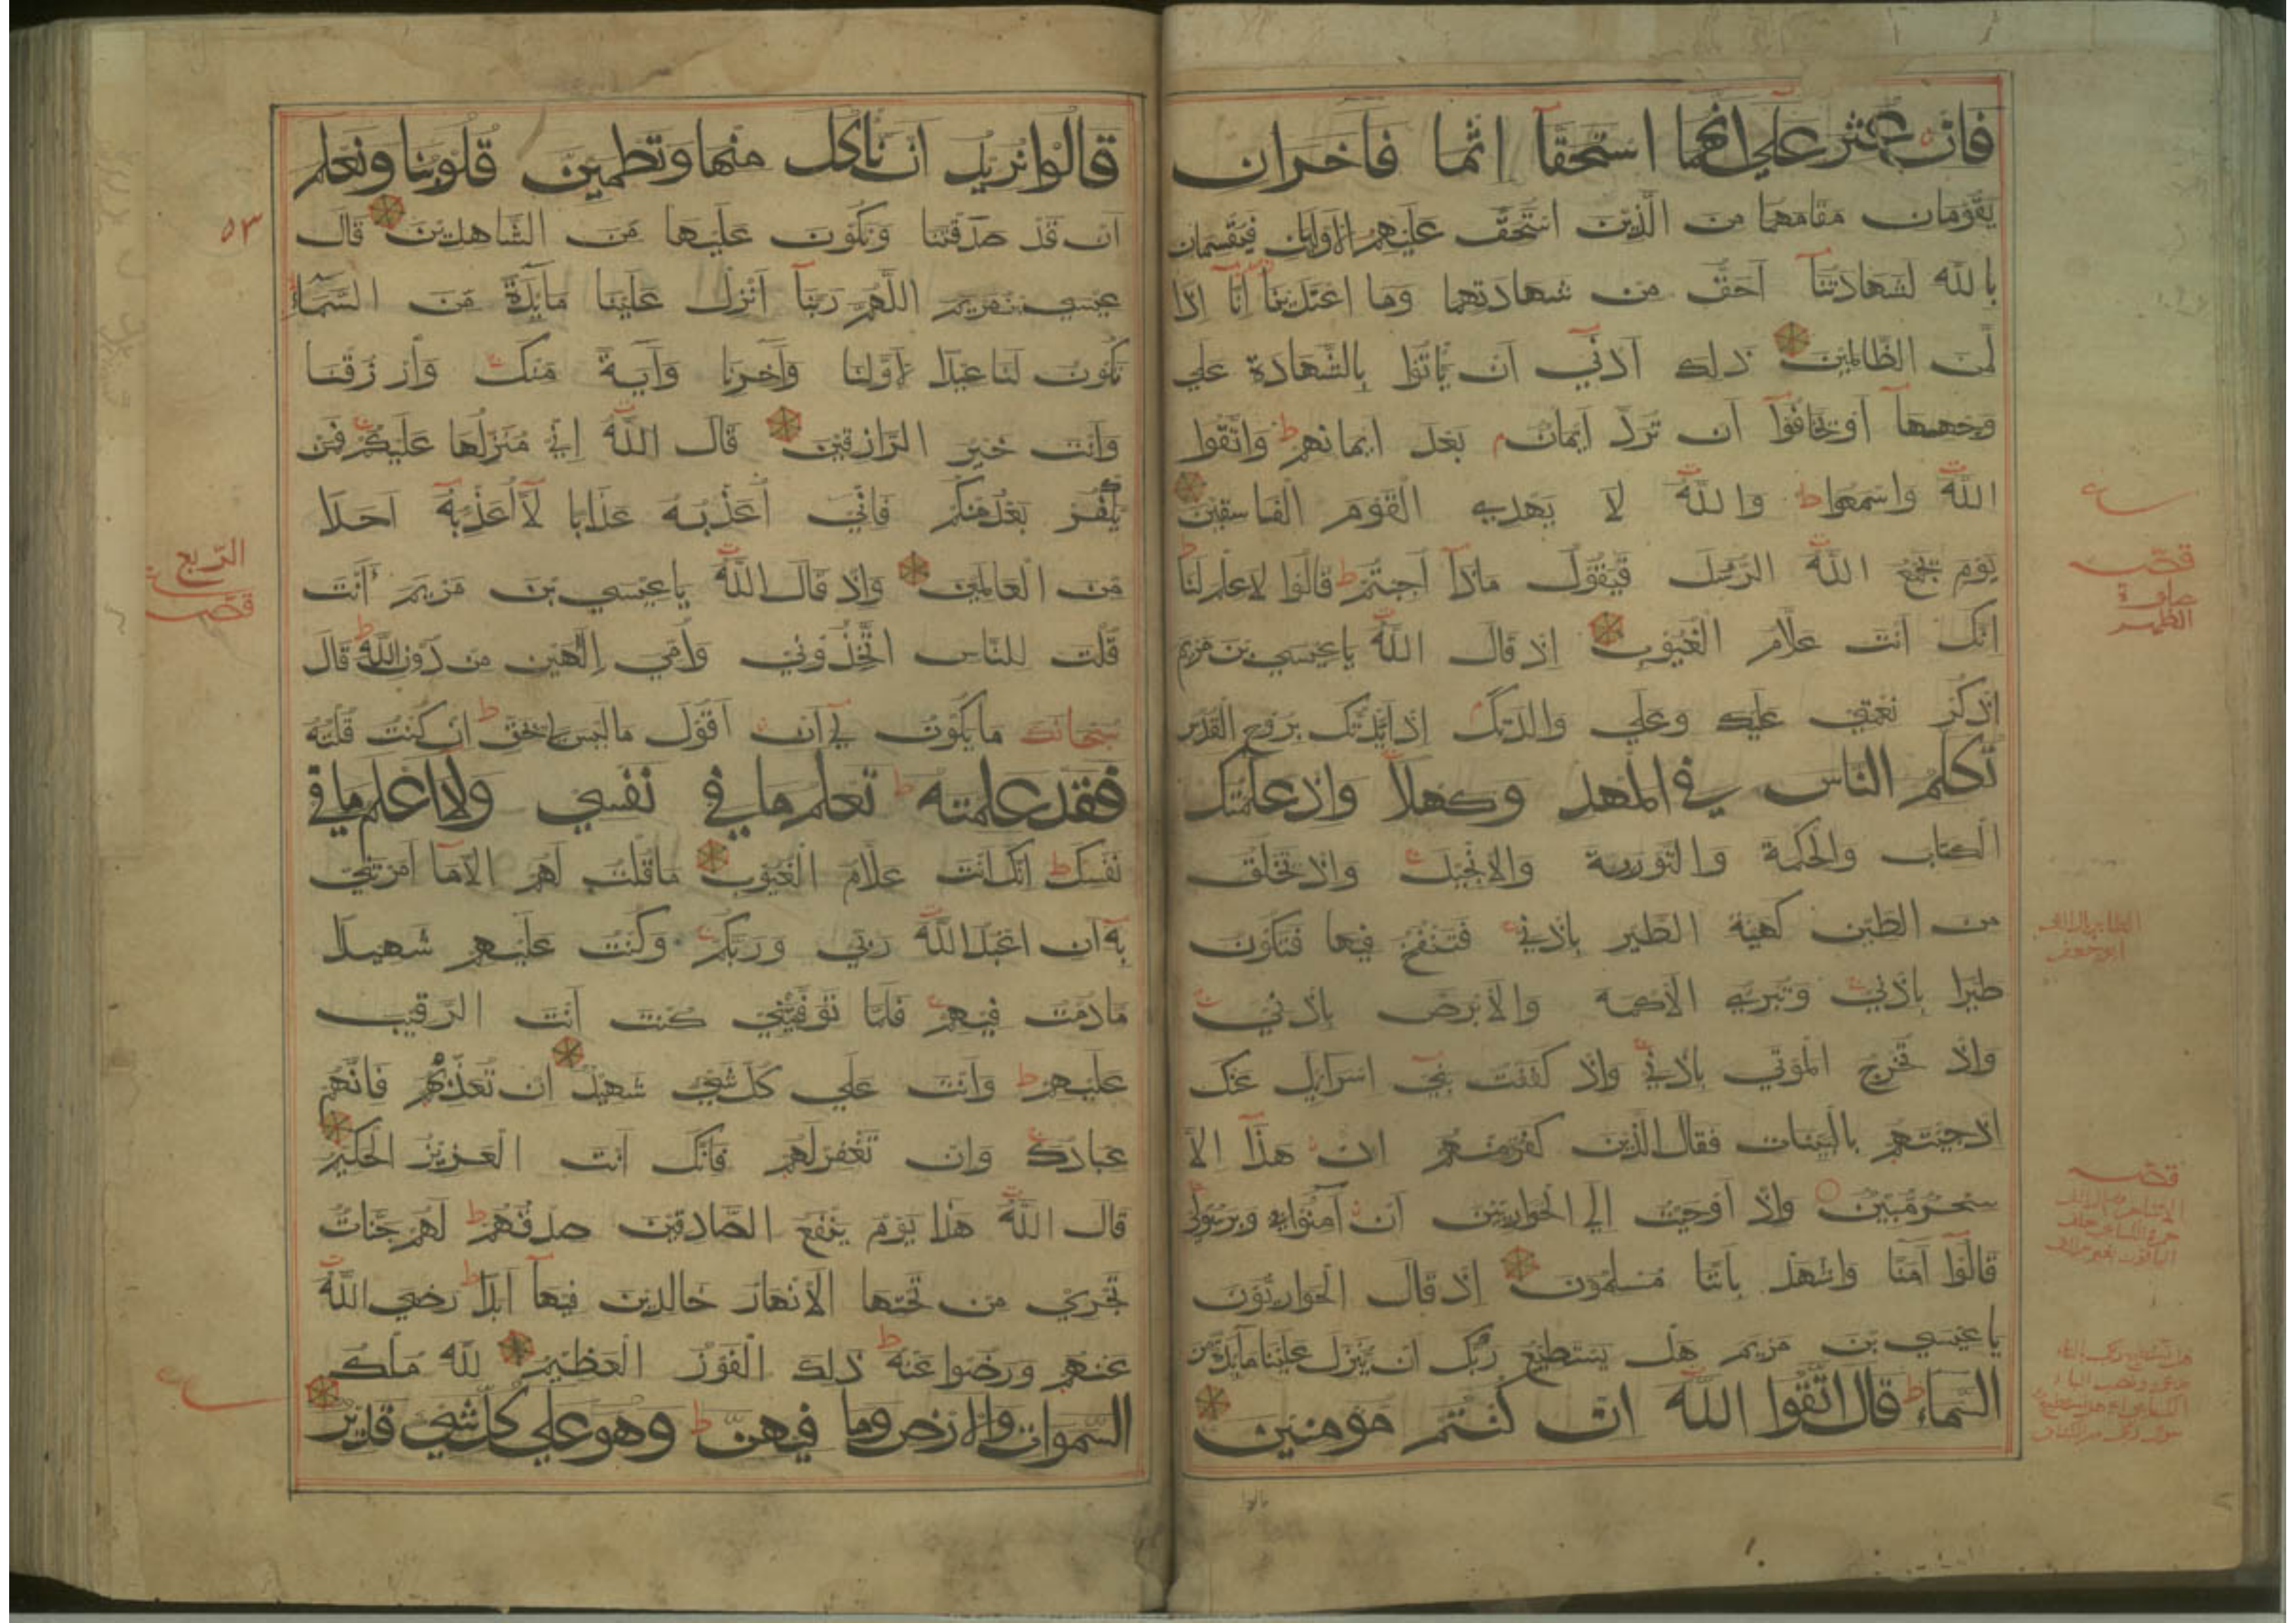 فان عثر علي انهما استحقا اثما فاخران
يقومان مقامهما من الذين استحق عليهم الاوليان فيقسمان
بالله لشهادتنا احق من شهادتهما وما اعتدينا انا اذا
لمن الظالمين ذلك ادني ان ياتوا بالشهادة علي
وجهها او يخافوا ان ترد ايمان بعد ايمانهم ط واتقوا
الله واسمعوا ط والله لا يهدي القوم الفاسقين
يوم يجمع الله الرسل فيقول ماذا اجبتم ط قالوا لا علم لنا ط
انك انت علام الغيوب اذ قال الله يا عيسي بن مريم
اذكر نعمتي عليك وعلي والدتك اذ ايدتك بروح القدس
تكلم الناس في المهد وكهلا واذ علمتك
الكتاب والحكمة والتورية والانجيل واذ تخلق
من الطين كهية الطير باذني فتنفخ فيها فتكون
طيرا باذني وتبري الاكمه والابرص باذني
واذ تخرج الموتي باذني واذ كففت بني اسرايل عنك
اذ جيتهم بالبينات فقال الذين كفروا منهم ان هذا الا
سحر مبين واذ اوحيت الي الحواريين ان آمنوا بي وبرسولي
قالوا آمنا واشهد باننا مسلمون اذ قال الحواريون
يا عيسي بن مريم هل يستطيع ربك ان ينزل علينا مايدة من
السماء ط قال اتقوا الله ان كنتم مومنين
قصب
صلوة
الظهر
ابو جعفر
قصب
قالوا نريد ان ناكل منها وتطمين قلوبنا ونعلم
ان قد صدقتنا ونكون عليها من الشاهدين قال
عيسي بن مريم اللهم ربنا انزل علينا مايدة من السماء
تكون لنا عيدا لاولنا وآخرنا وآية منك وارزقنا
وانت خير الرازقين قال الله اني منزلها عليكم فمن
يكفر بعد منكم فاني اعذبه عذابا لا اعذبه احدا
من العالمين واذ قال الله يا عيسي بن مريم ءانت
قلت للناس اتخذوني وامي الهين من دون الله ط قال
سبحانك ما يكون لي ان اقول ما ليس لي بحق ط ان كنت قلته
فقد علمته ط تعلم ما في نفسي ولا اعلم ما في
نفسك ط انك انت علام الغيوب ما قلت لهم الا ما امرتني
به ان اعبد الله ربي وربكم وكنت عليهم شهيدا
ما دمت فيهم فلما توفيتني كنت انت الرقيب
عليهم ط وانت علي كل شي شهيد ان تعذبهم فانهم
عبادك وان تغفر لهم فانك انت العزيز الحكيم
قال الله هذا يوم ينفع الصادقين صدقهم ط لهم جنات
تجري من تحتها الانهار خالدين فيها ابدا ط رضي الله
عنهم ورضوا عنه ط ذلك الفوز العظيم لله ملك
السموات والارض وما فيهن ط وهو علي كل شي قدير
٥٣
الربع
قصب